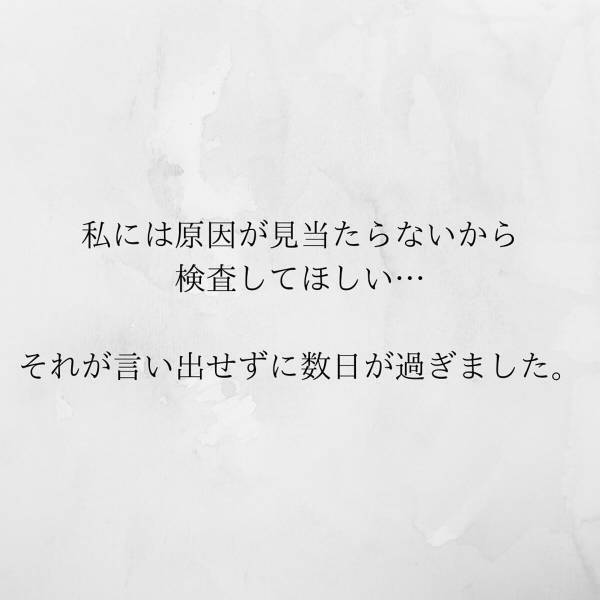 私には原因が見当たらないから
検査してほしい…
それが言い出せずに数日が過ぎました。